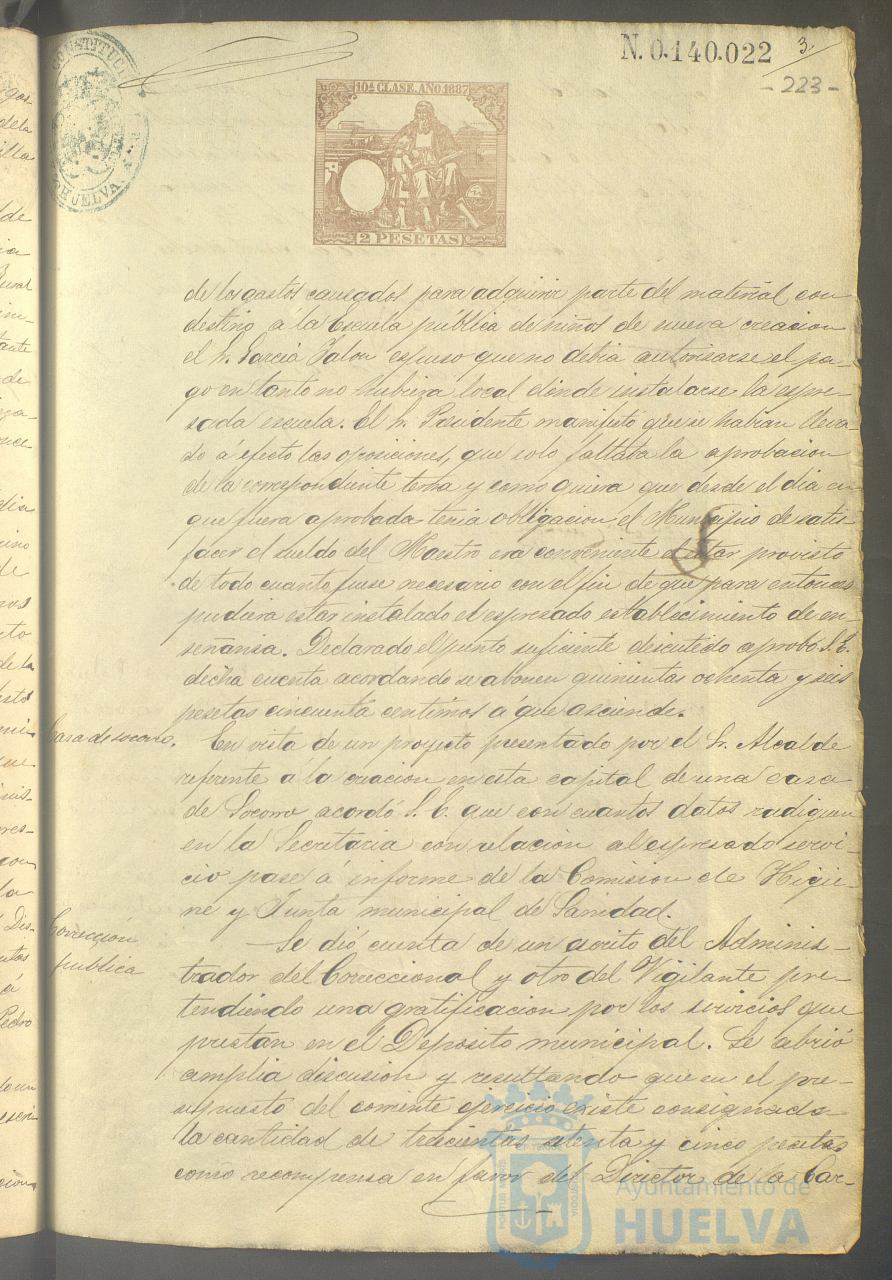 N. 0.140.022
3
- 223 -
CONSTITUC
HUELVA
10ª CLASE. AÑO 1887
2 PESETAS
de los gastos causados para adquirir parte del material con
destino á la Escuela pública de niños de nueva creacion
el Sr. Garcia Jalon espuso que no debia autorisarse el pa-
go en tanto no hubiera local dónde instalarse la espre-
sada escuela. El Sr. Presidente manifestó que se habian lleva-
do á efecto las oposiciones, que solo faltaba la aprobacion
de la correspondiente terna y como quiera que desde el dia en
que fuera aprobada tenia obligacion el Municipio de satis
facer el sueldo del Maestro era conveniente el estar provisto
de todo cuanto fuese necesario con el fin de que para entonces
pudiera estar instalado el espresado establecimiento de en-
señansa. Declarado el punto suficiente discutido aprobó S. E.
dicha cuenta acordando se abonen quinientas ochenta y seis
pesetas cincuenta centimos á que asciende.
Casa de socorro.
En vista de un proyecto presentado por el Sr. Alcalde
referente a la creacion en esta capital de una casa
de Socorro acordó S. E. que con cuantos datos radiquen
en la Secretaria con relacion al espresado servi-
cio pase á informe de la Comision de Higie-
ne y Junta municipal de Sanidad.
Corrección
publica
Se dió cuenta de un escrito del Adminis-
trador del Correccional y otro del Vigilante pre-
tendiendo una gratificacion por los servicios que
prestan en el Deposito municipal. Se abrió
amplia discusion y resultando que en el pre-
supuesto del corriente ejercicio existe consignada
la cantidad de trescientas setenta y cinco pesetas
como recompensa en favor del Director de la Car-
Ayuntamiento de
HUELVA